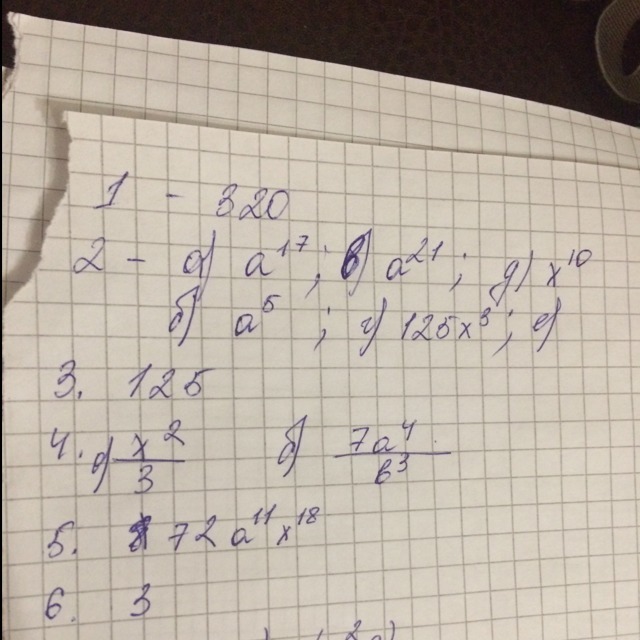 1 - 320
2 - а) a¹⁷; в) a²¹; д) x¹⁰
б) a⁵; г) 125x³; е)
3. 125
4. а) x²/3 б) 7a⁴/b³
5. 72a¹¹x¹⁸
6. 3